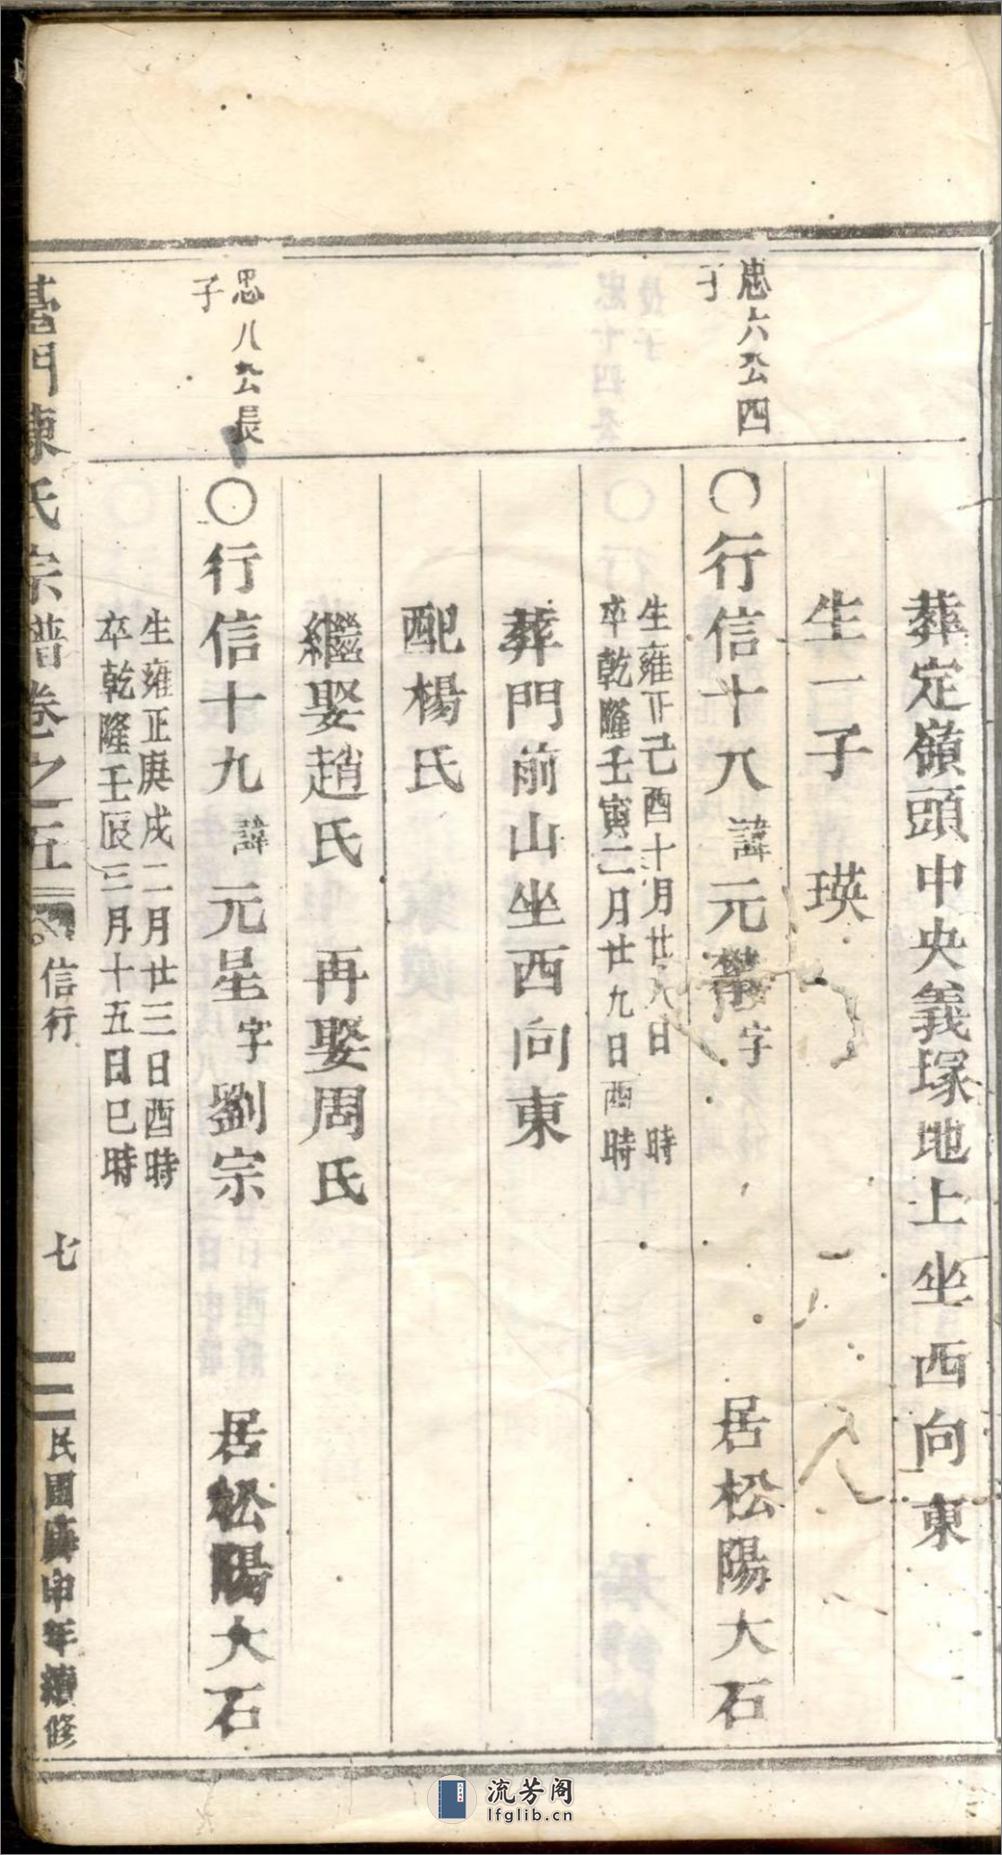 葬定嶺頭中央義塚地上坐西向東
生一子 瑛
忠六公四
子
〇行信十八 諱元 字 居松陽大石
生雍正己酉十月廿八日 時
卒乾隆壬寅二月廿九日酉時
葬門前山坐西向東
配楊氏
繼娶趙氏 再娶周氏
忠八公長
子
〇行信十九 諱元星 字劉宗 居松陽大石
生雍正庚戌二月廿三日酉時
卒乾隆壬辰三月十五日巳時
臺門陳氏宗譜卷之五 信行 七 民國庚申年續修
流芳阁
lfglib.cn